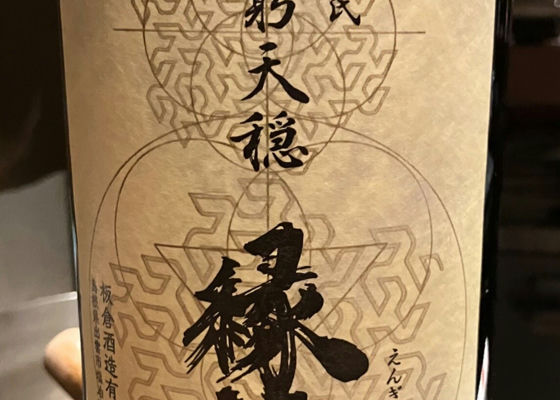 民
躬天穏
縁
えんぎ
板倉酒造有
島根県出雲市塩冶